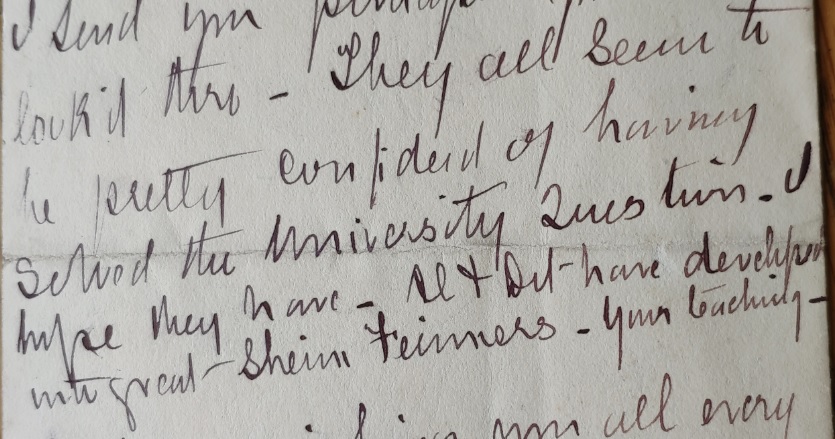 I send you
look'd thro - They all seem to
be pretty confident of having
solved the University Question - I
hope they have - Al & Dot have developed
into great Sheim Feinners - Your teaching -
you all every